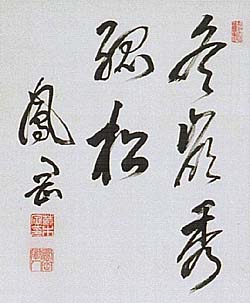 冬嶺秀
孤松
鳳岡